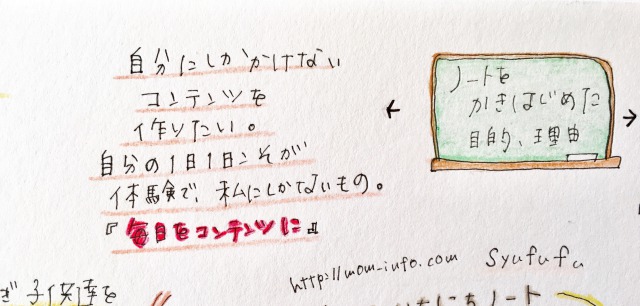 自分にしかかけない
コンテンツを
作りたい。
自分の1日1日こそが
体験で、私にしかないもの。
『毎日をコンテンツに』
← ノートを →
かきはじめた
目的、理由
http://mom-info.com Syufufu
ぎ 子供達を
にちノート